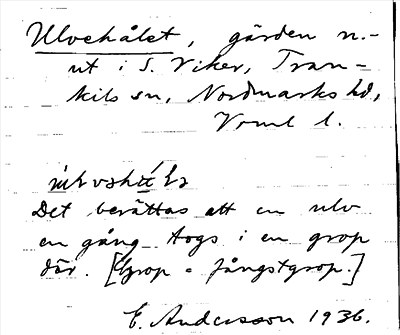 Ulvehålet, gärden n.-
ut i S. Viker, Tran-
kils sn, Nordmarks hd,
Vrml l.
Det berättas att en ulv
en gång togs i en grop
där. [Grop = fångstgrop.]
E. Andersson 1936.